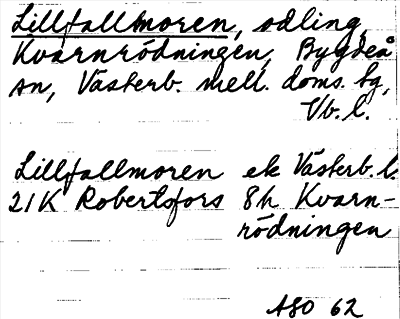 Lillfallmoren, odling,
Kvarnrödningen, Bygdeå
sn, Västerb. mell. doms. bg,
Vb. l.
Lillfallmoren ek Västerb. l.
21K Robertsfors 8h Kvarn-
rödningen
ASO 62